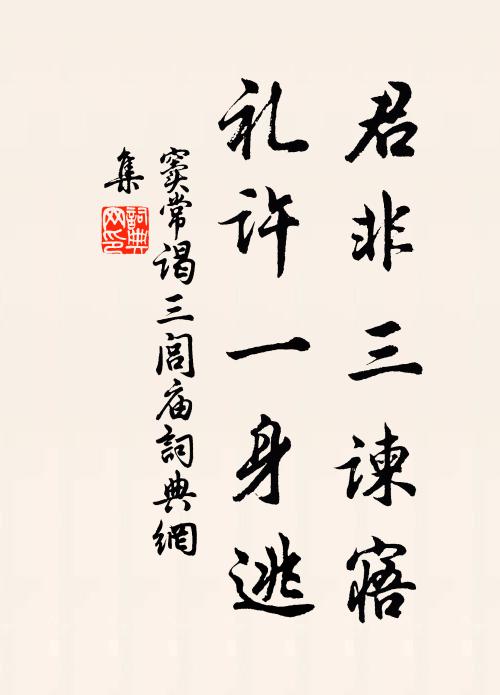 君非三谏寤
礼许一身逃
窦常谒三闾庙詞典網
集
詞典
网印